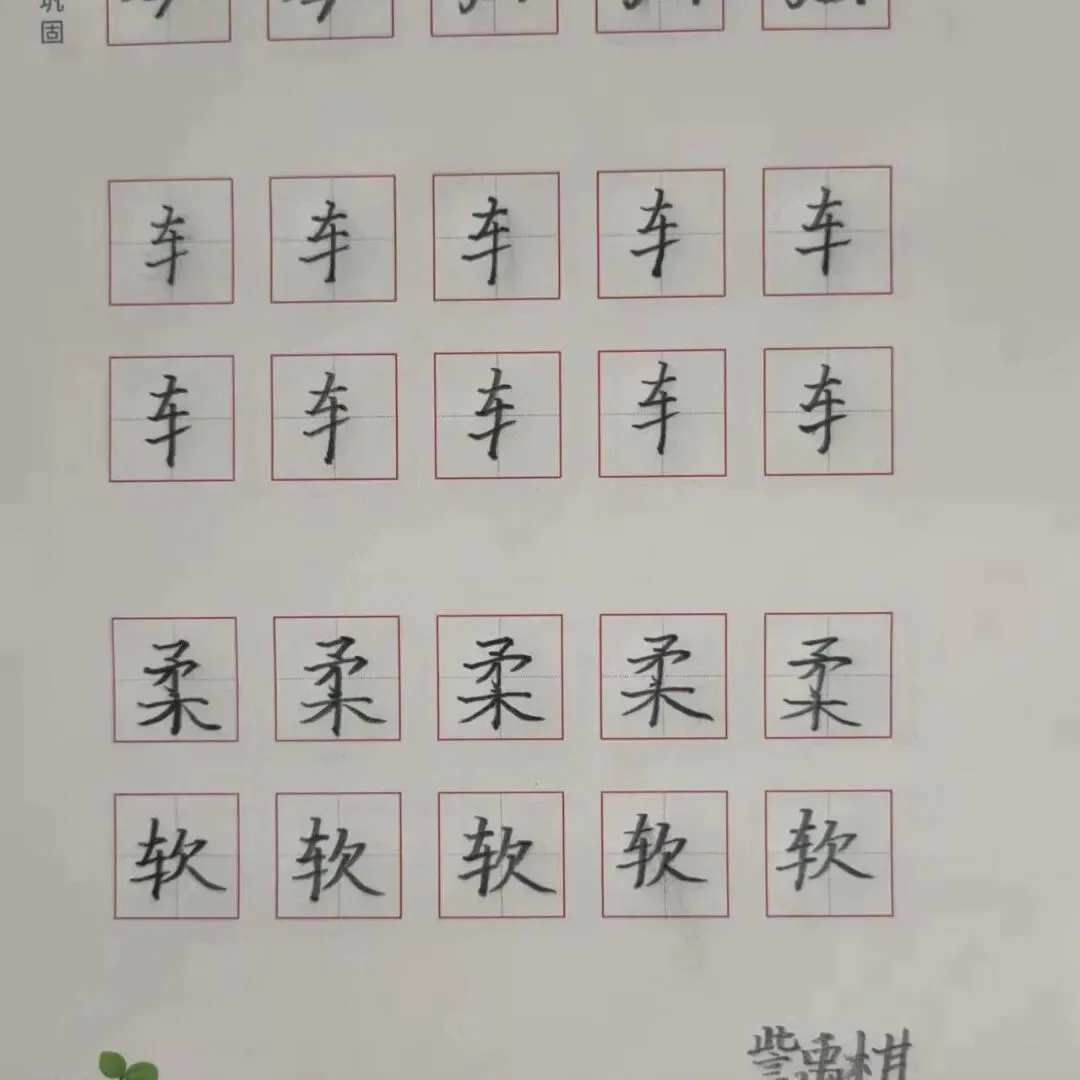 巩固
车 车 车 车 车
车 车 车 车 车
柔 柔 柔 柔 柔
软 软 软 软 软